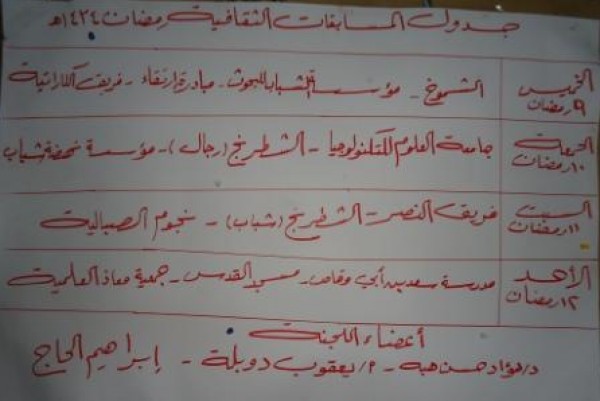 جدول المسابقات الثقافية رمضان ١٤٣٤هـ
الخميس
٩ رمضان
الشموخ - مؤسسة الشباب للبحوث - مبادرة ارتقاء - فريق الكاراتية
الجمعة
١٠ رمضان
جامعة العلوم للكتلنولوجيا - الشطرنج (رجال) - مؤسسة نهضة شباب
السبت
١١ رمضان
فريق النصر - الشطرنج (شباب) - نجوم الصبالية
الأحد
١٢ رمضان
مدرسة سعد بن أبي وقاص - مسجد القدس - جمعية معاذ العلمية
أعضاء اللجنة
د/فؤاد حسن هبه - م/يعقوب دوبلة - إبراهيم الحاج